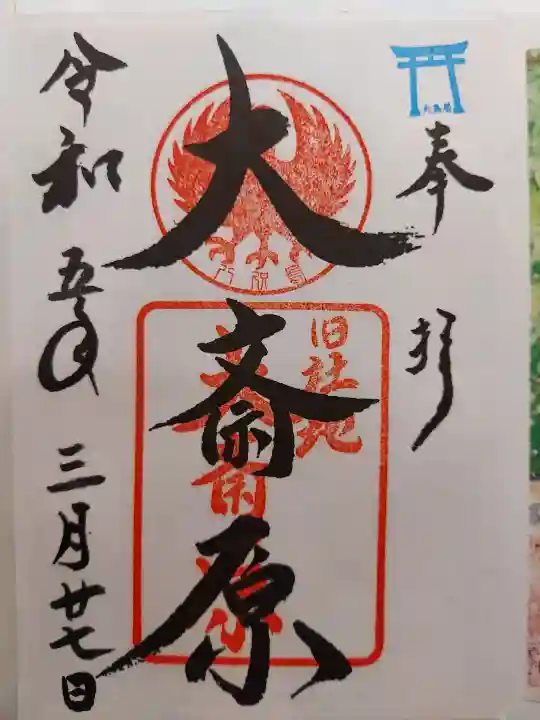 奉拝
大斎原
旧社地
大斎原
令和五年三月廿七日